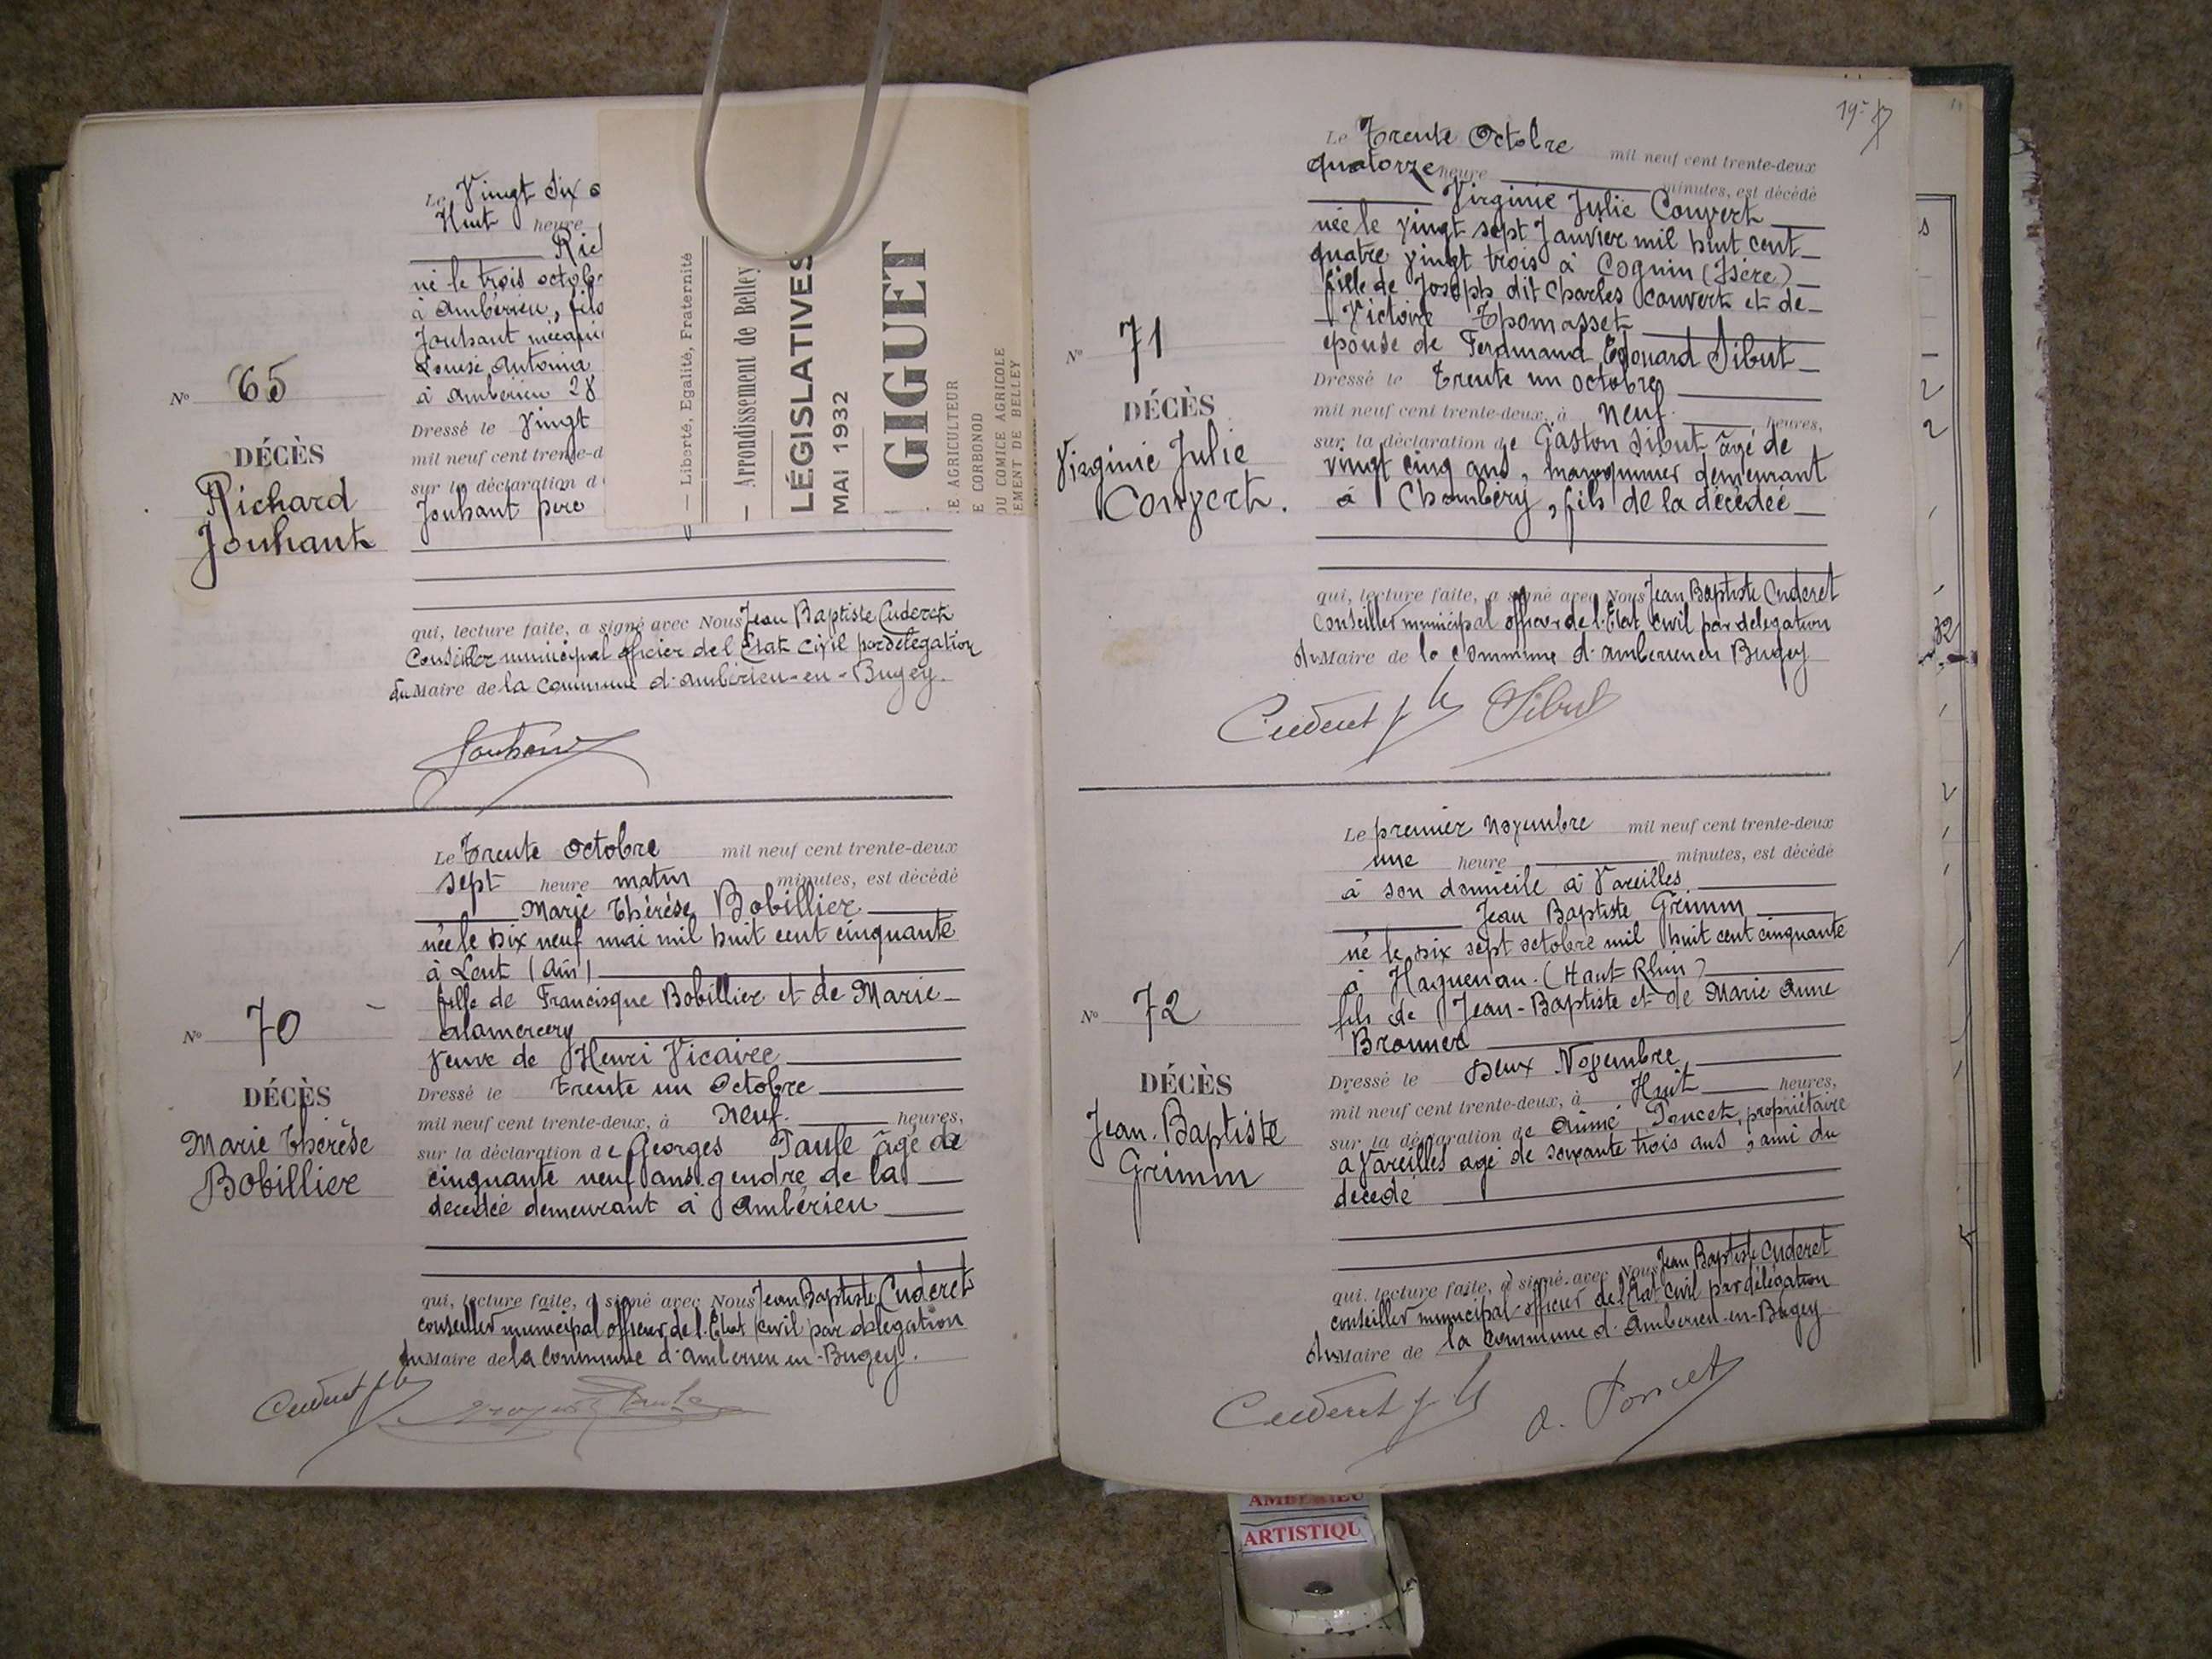 Le Vingt Six o
Huit heure
Rich
né le trois octob
à Ambérieu, fils
Jouhant mécani
Louise, Antonia
à Ambérieu 28
Dressé le Vingt
mil neuf cent trente-d
sur la déclaration d
Jouhant père
N° 65
DÉCÈS
Richard
Jouhant
qui, lecture faite, a signé avec Nous Jean Baptiste Cuderet
Conseiller municipal officier de l'Etat Civil par délégation
du Maire de la commune d'Ambérieu-en-Bugey.
Jouhant
— Liberté, Egalité, Fraternité
— Arrondissement de Belley
LÉGISLATIVES
MAI 1932
GIGUET
E AGRICULTEUR
E CORBONOD
DU COMICE AGRICOLE
EMENT DE BELLEY
Le Trente Octobre mil neuf cent trente-deux
sept heure matin minutes, est décédé
Marie Thérèse Bobillier
née le dix neuf mai mil huit cent cinquante
à Lent (Ain)
fille de Francisque Bobillier et de Marie
Alamercery
veuve de Henri Vicaire
Dressé le trente un Octobre
mil neuf cent trente-deux, à Neuf heures,
sur la déclaration de Georges Taule âgé de
cinquante neuf ans gendre de la
décédée demeurant à Ambérieu
N° 70
DÉCÈS
Marie Thérèse
Bobillier
qui, lecture faite, a signé avec Nous Jean Baptiste Cuderet
conseiller municipal officier de l'Etat Civil par délégation
du Maire de la commune d'Amberieu en-Bugey.
Cuderet
19
Le Trente Octobre mil neuf cent trente-deux
quatorze heure minutes, est décédé
Virginie Julie Convert
née le vingt sept Janvier mil huit cent
quatre vingt trois à Cognin (Isère)
fille de Joseph dit Charles Convert et de
Victoire Thomasset
épouse de Ferdinand Edouard Sibut
Dressé le Trente un octobre
mil neuf cent trente-deux, à Neuf heures,
sur la déclaration de Gaston Sibut âgé de
vingt cinq ans, demeurant
à Chambéry, fils de la décédée
N° 71
DÉCÈS
Virginie Julie
Convert.
qui, lecture faite, a signé avec Nous Jean Baptiste Cuderet
Conseiller municipal officier de l'Etat Civil par délégation
du Maire de la commune d'Amberieu en Bugey
Cuderet Sibut
Le premier Novembre mil neuf cent trente-deux
une heure minutes, est décédé
à son domicile à Vareilles
Jean Baptiste Grimm
né le dix sept octobre mil huit cent cinquante
à Haguenau. (Haut-Rhin)
fils de Jean-Baptiste et de Marie Anne
Bronner
Dressé le Deux Novembre
mil neuf cent trente-deux, à Huit heures,
sur la déclaration de Aimé Poncet, propriétaire
à Vareilles agé de soixante trois ans, ami du
décédé
N° 72
DÉCÈS
Jean-Baptiste
Grimm
qui, lecture faite, a signé avec Nous Jean Baptiste Cuderet
conseiller municipal officier de l'Etat Civil par délégation
du Maire de la commune d'Amberieu-en-Bugey
Cuderet A. Poncet
AMBÉRIEU
ARTISTIQU